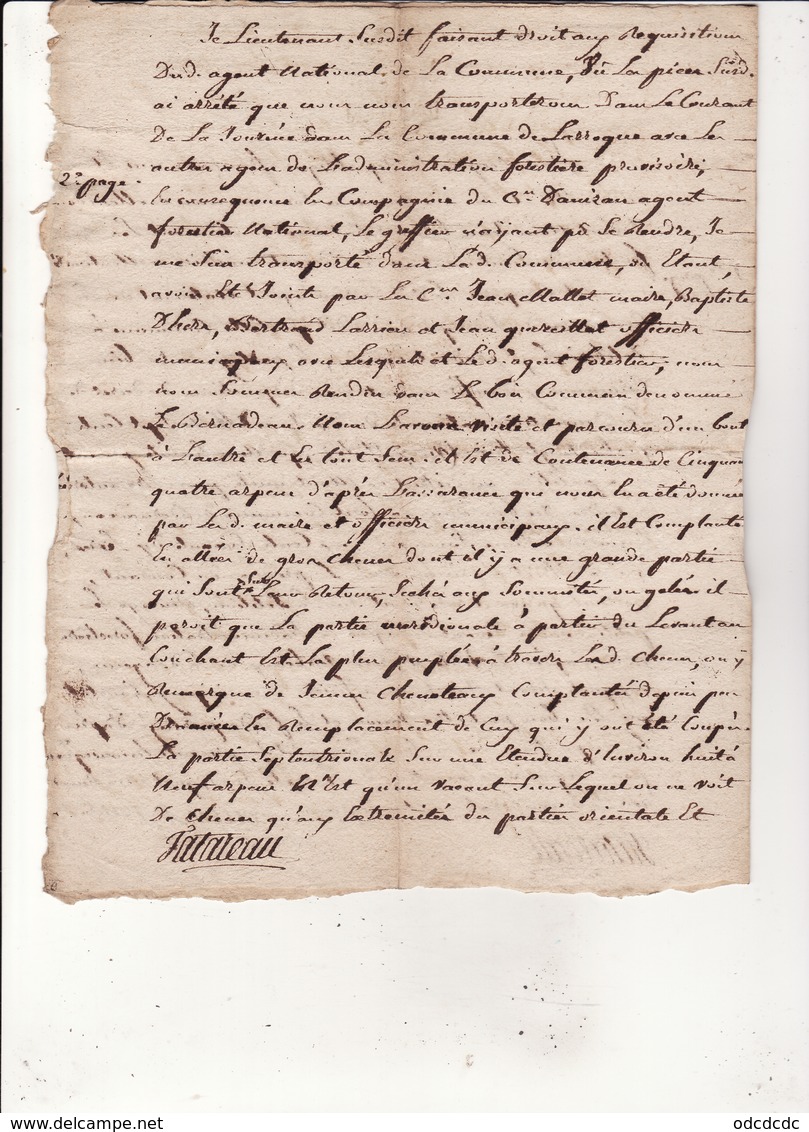 Je Lieutenant Susdit faisant droit aux Requisitions
Dud. agent National de La Commune, Vu La piece Susd.
ai arrété que nous nous transporterons Dans Le Courant
De La Journée dans La Commune de Larroque avec les
autres agens de L'administration forestiere provisoire,
2e page
En consequence En Compagnie du Cen. Damzan agent
forestier National, Le greffier n'ayant pû Se Rendre, Je
me Suis transporté dans Lad. Commune, ou Etant,
avons Eté Joints par Les Cens. Jean Mallet maire, Baptiste
Dhers, Bertrand Larrieu et Jean officiers
municipaux avec Lesquels et Led. agent forestier, nous
nous Sommes Rendus dans Le bois Commun denommé
Le Bernadeau. Nous L'avons visité et parcouru d'un bout
à L'autre et En tout Sens. il Est de Contenance de Cinquan
quatre arpens d'après L'assurance qui nous En a été donnée
par Lesd. maire et officiers municipaux. il Est Complanté
En allées de gros chenes dont il y a une grande partie
qui Sont Sur Leur Retour, Sechés aux Sommités, ou gelés il
paroit que La partie meridionale à partir du Levant au
Couchant Est La plus peuplée à travers Lesd. chenes, on y
Remarque de Jeunes Cheneteaux Complantés depuis peu
D'années En Remplacement de Ceux qui y ont été Coupés.
La partie Septentrionale Sur une Etendue d'Environ huit à
Neuf arpens N'Est qu'un vacant Sur Lequel on ne voit
De chenes qu'aux Extremités des parties orientale Et
Fatareau
odcdcdc